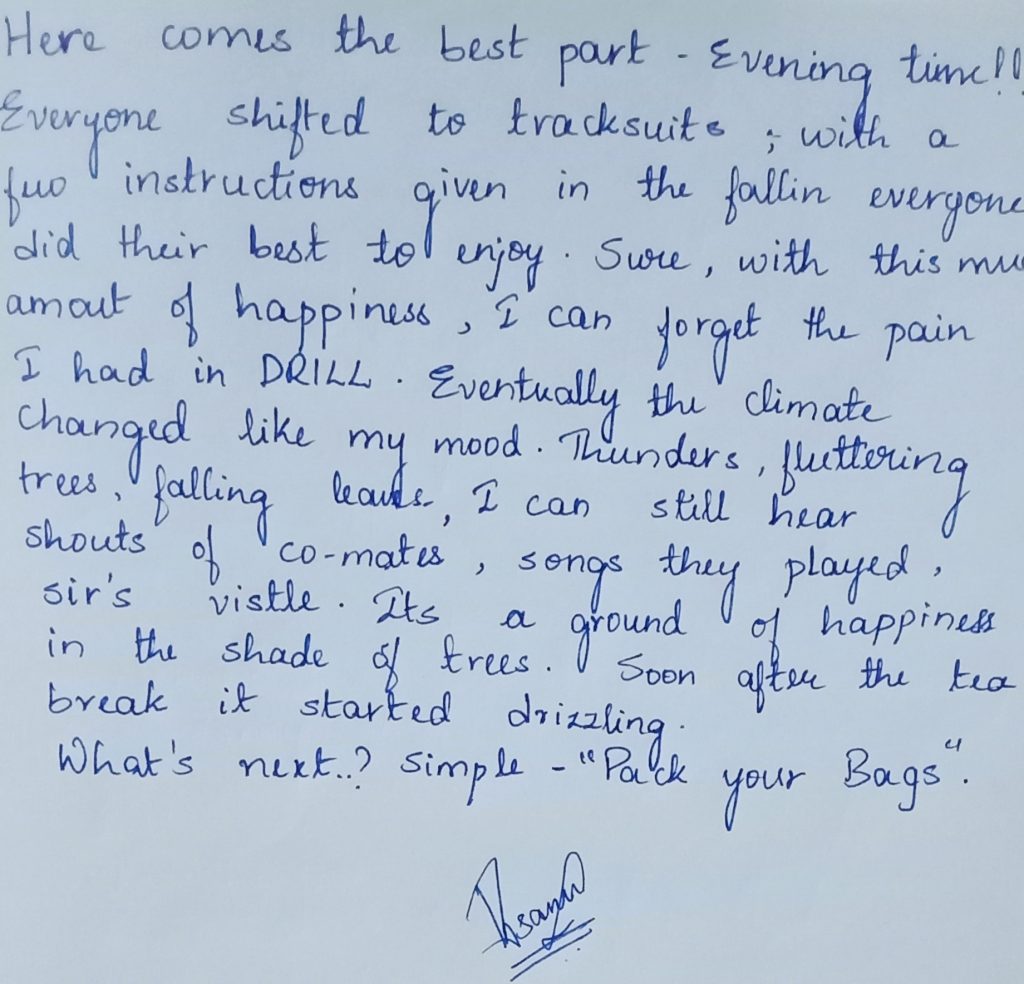 Here comes the best part - Evening time!!
Everyone shifted to tracksuits ; with a
few instructions given in the fallin everyone
did their best to enjoy. Sure, with this mu
amout of happiness, I can forget the pain
I had in DRILL. Eventually the climate
changed like my mood. Thunders, fluttering
trees, falling leaves, I can still hear
shouts of co-mates, songs they played,
sir's vistle. Its a ground of happiness
in the shade of trees. Soon after the tea
break it started drizzling.
What's next..? Simple - "Pack your Bags".